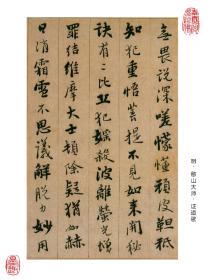 無畏說深嗟懞懂頑皮靼祇
知犯重悟菩提不見如來開秘
訣有二比丘犯婬殺波離螢光增
罪結維摩大士頓除疑猶如赫
日消霜雪不思議解脫力妙用
明·憨山大师 证道歌